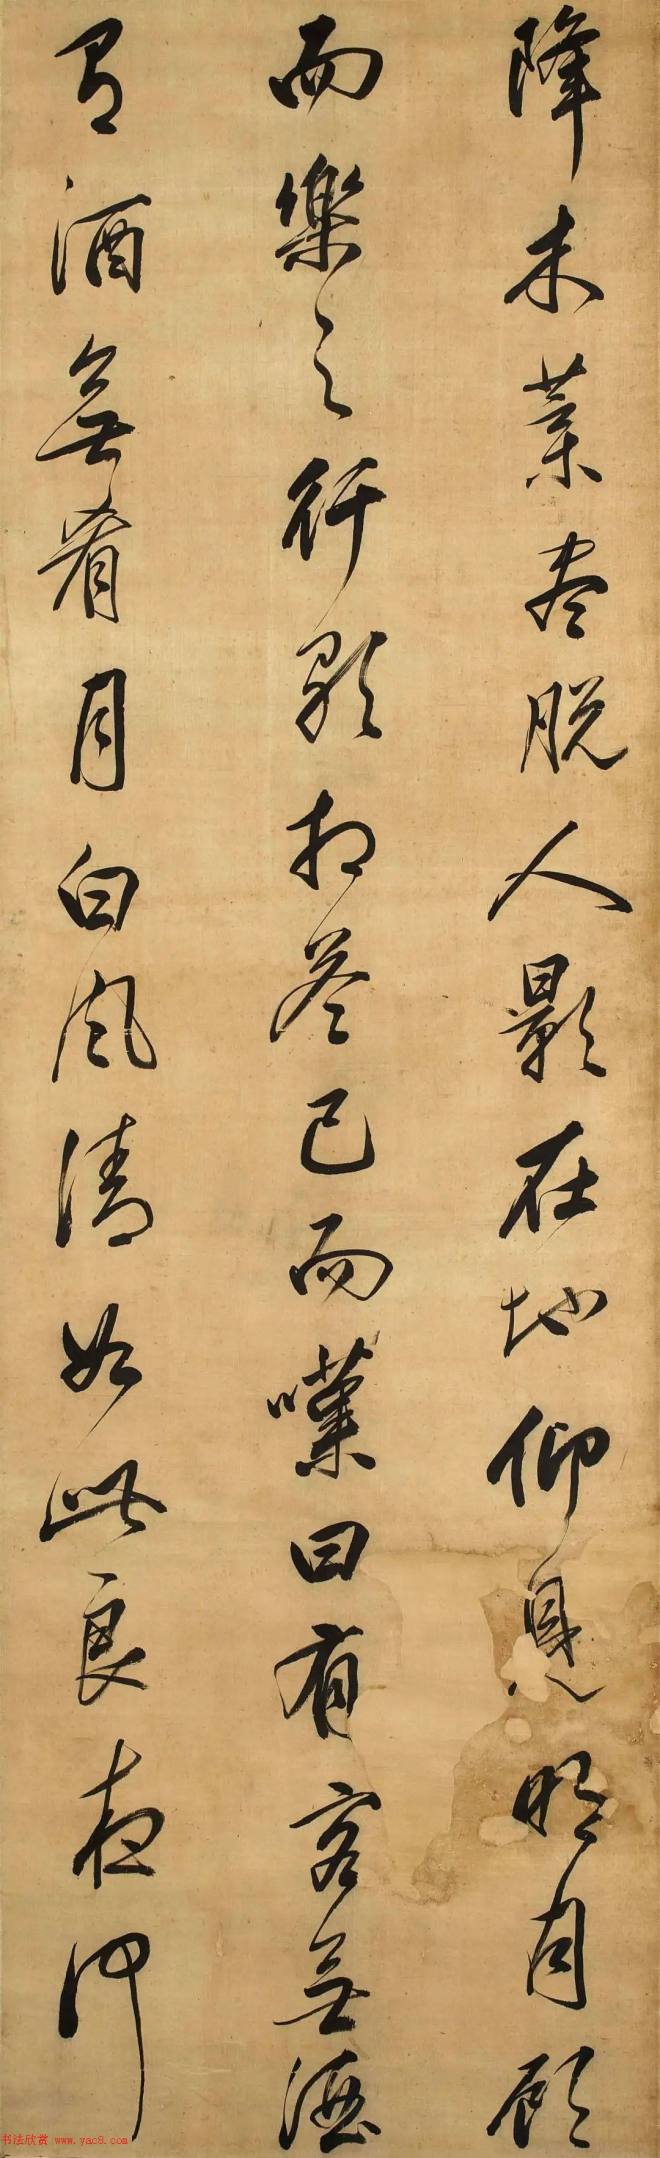 降木葉盡脱人影在地仰見明月顧
而樂之行歌相答已而嘆曰有客無酒
有酒無肴月白風清如此良夜何
书法欣赏 www.yac8.com